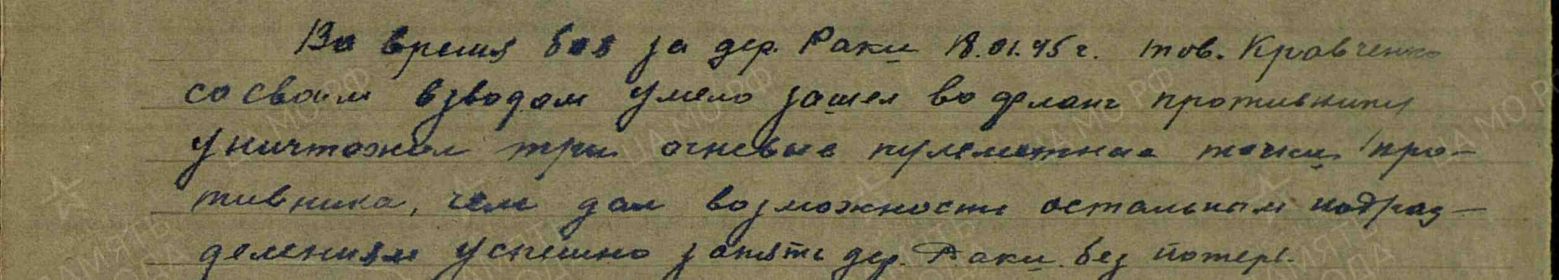 Во время боя за дер. Раки 18.01.45 г. тов. Кравченко
со своим взводом умело зашел во фланг противнику
уничтожил три огневые пулеметные точки про-
тивника, чем дал возможность остальным подраз-
делениям успешно занять дер. Раки без потерь.